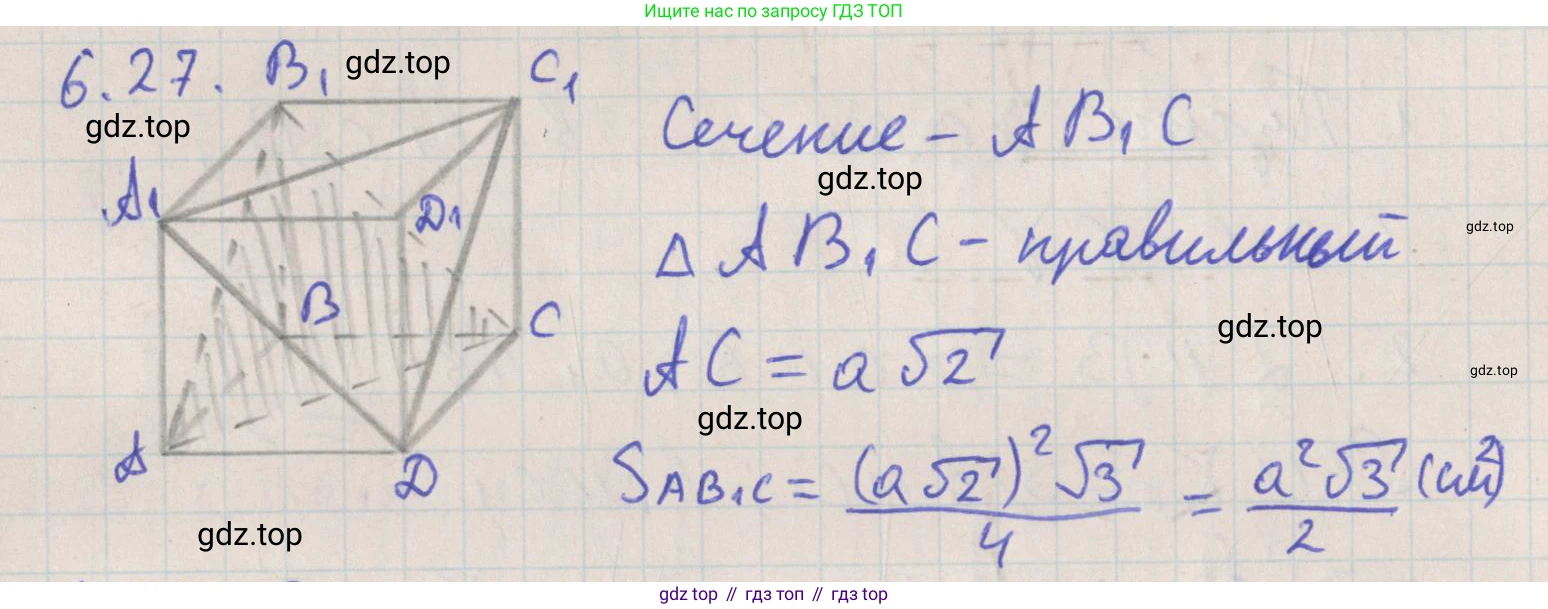 Ищите нас по запросу ГДЗ ТОП
6.27. B₁ gdz.top C₁
gdz.top
Сечение - AB₁C
gdz.top
A₁ D₁
Δ AB₁C - правильный
gdz.top
B C
gdz.top
AC = a√2
gdz.top
gdz.top
A D
S AB₁C = (a√2)²√3 / 4 = a²√3 / 2 (см²)
gdz.top
gdz top // гдз топ // гдз top